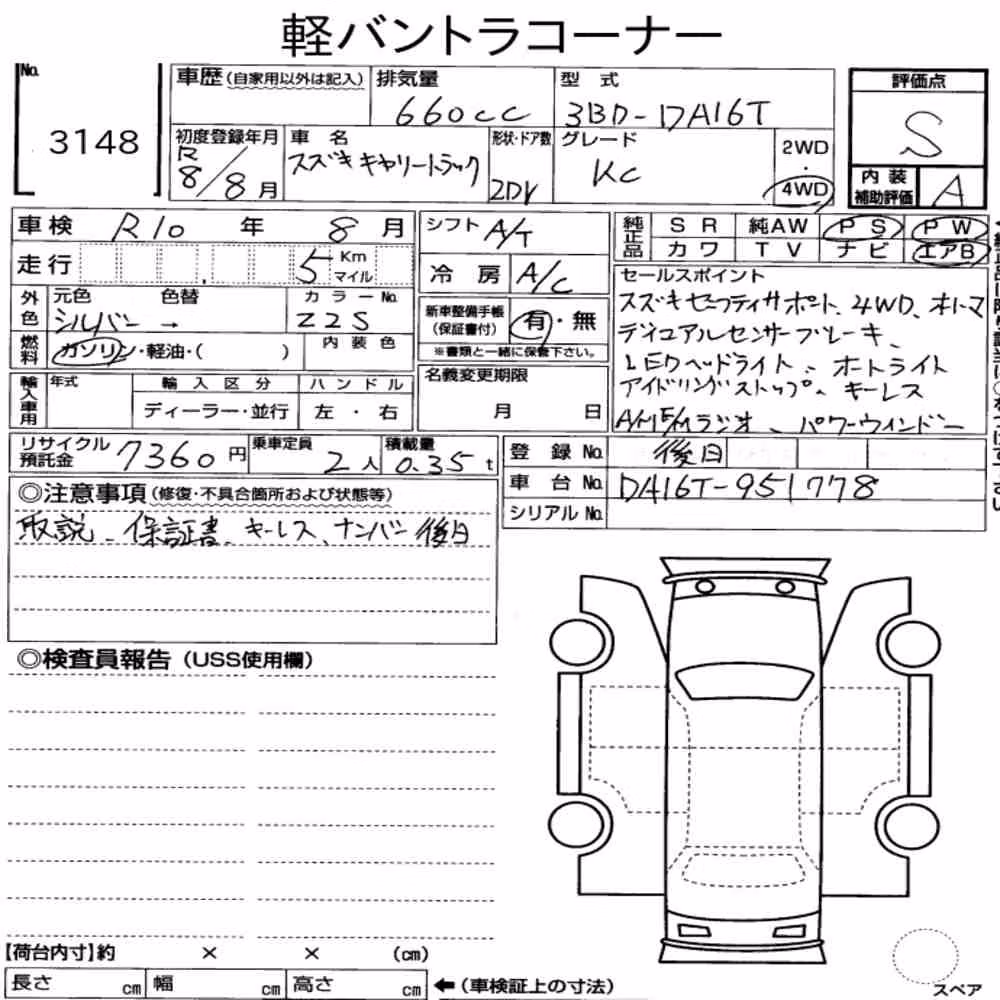 軽バントラコーナー
No.
3148
車歴 (自家用以外は記入)
排気量
660cc
型式
3BD-DA16T
評価点
S
初度登録年月
R
8/8月
車名
スズキ キャリートラック
形状・ドア数
2DV
グレード
KC
2WD
・
4WD
内装
補助評価
A
車検 R10 年 8 月
走行 5 Km
マイル
シフト A/T
冷房 A/C
純正品
SR 純AW PS PW
カワ TV ナビ エアB
外色
元色 色替 カラーNo.
シルバー → Z2S
燃料
ガソリン・軽油・( )
内装色
新車整備手帳
(保証書付)
有・無
※書類と一緒に保管下さい。
セールスポイント
スズキセーフティサポート、4WD、オートマ
デュアルセンサーブレーキ、
LEDヘッドライト、オートライト
アイドリングストップ、キーレス
AM/FMラジオ、パワーウィンドー
輸入車用
年式
輸入区分
ハンドル
ディーラー・並行
左・右
名義変更期限
月 日
リサイクル
預託金
7360円
乗車定員
2人
積載量
0.35t
登録No. 後日
車台No. DA16T-951778
シリアルNo.
◎注意事項 (修復・不具合箇所および状態等)
取説、保証書、キーレス、ナンバー後日
◎検査員報告 (USS使用欄)
【荷台内寸】約 × × (cm)
長さ cm 幅 cm 高さ cm ←(車検証上の寸法)
スペア